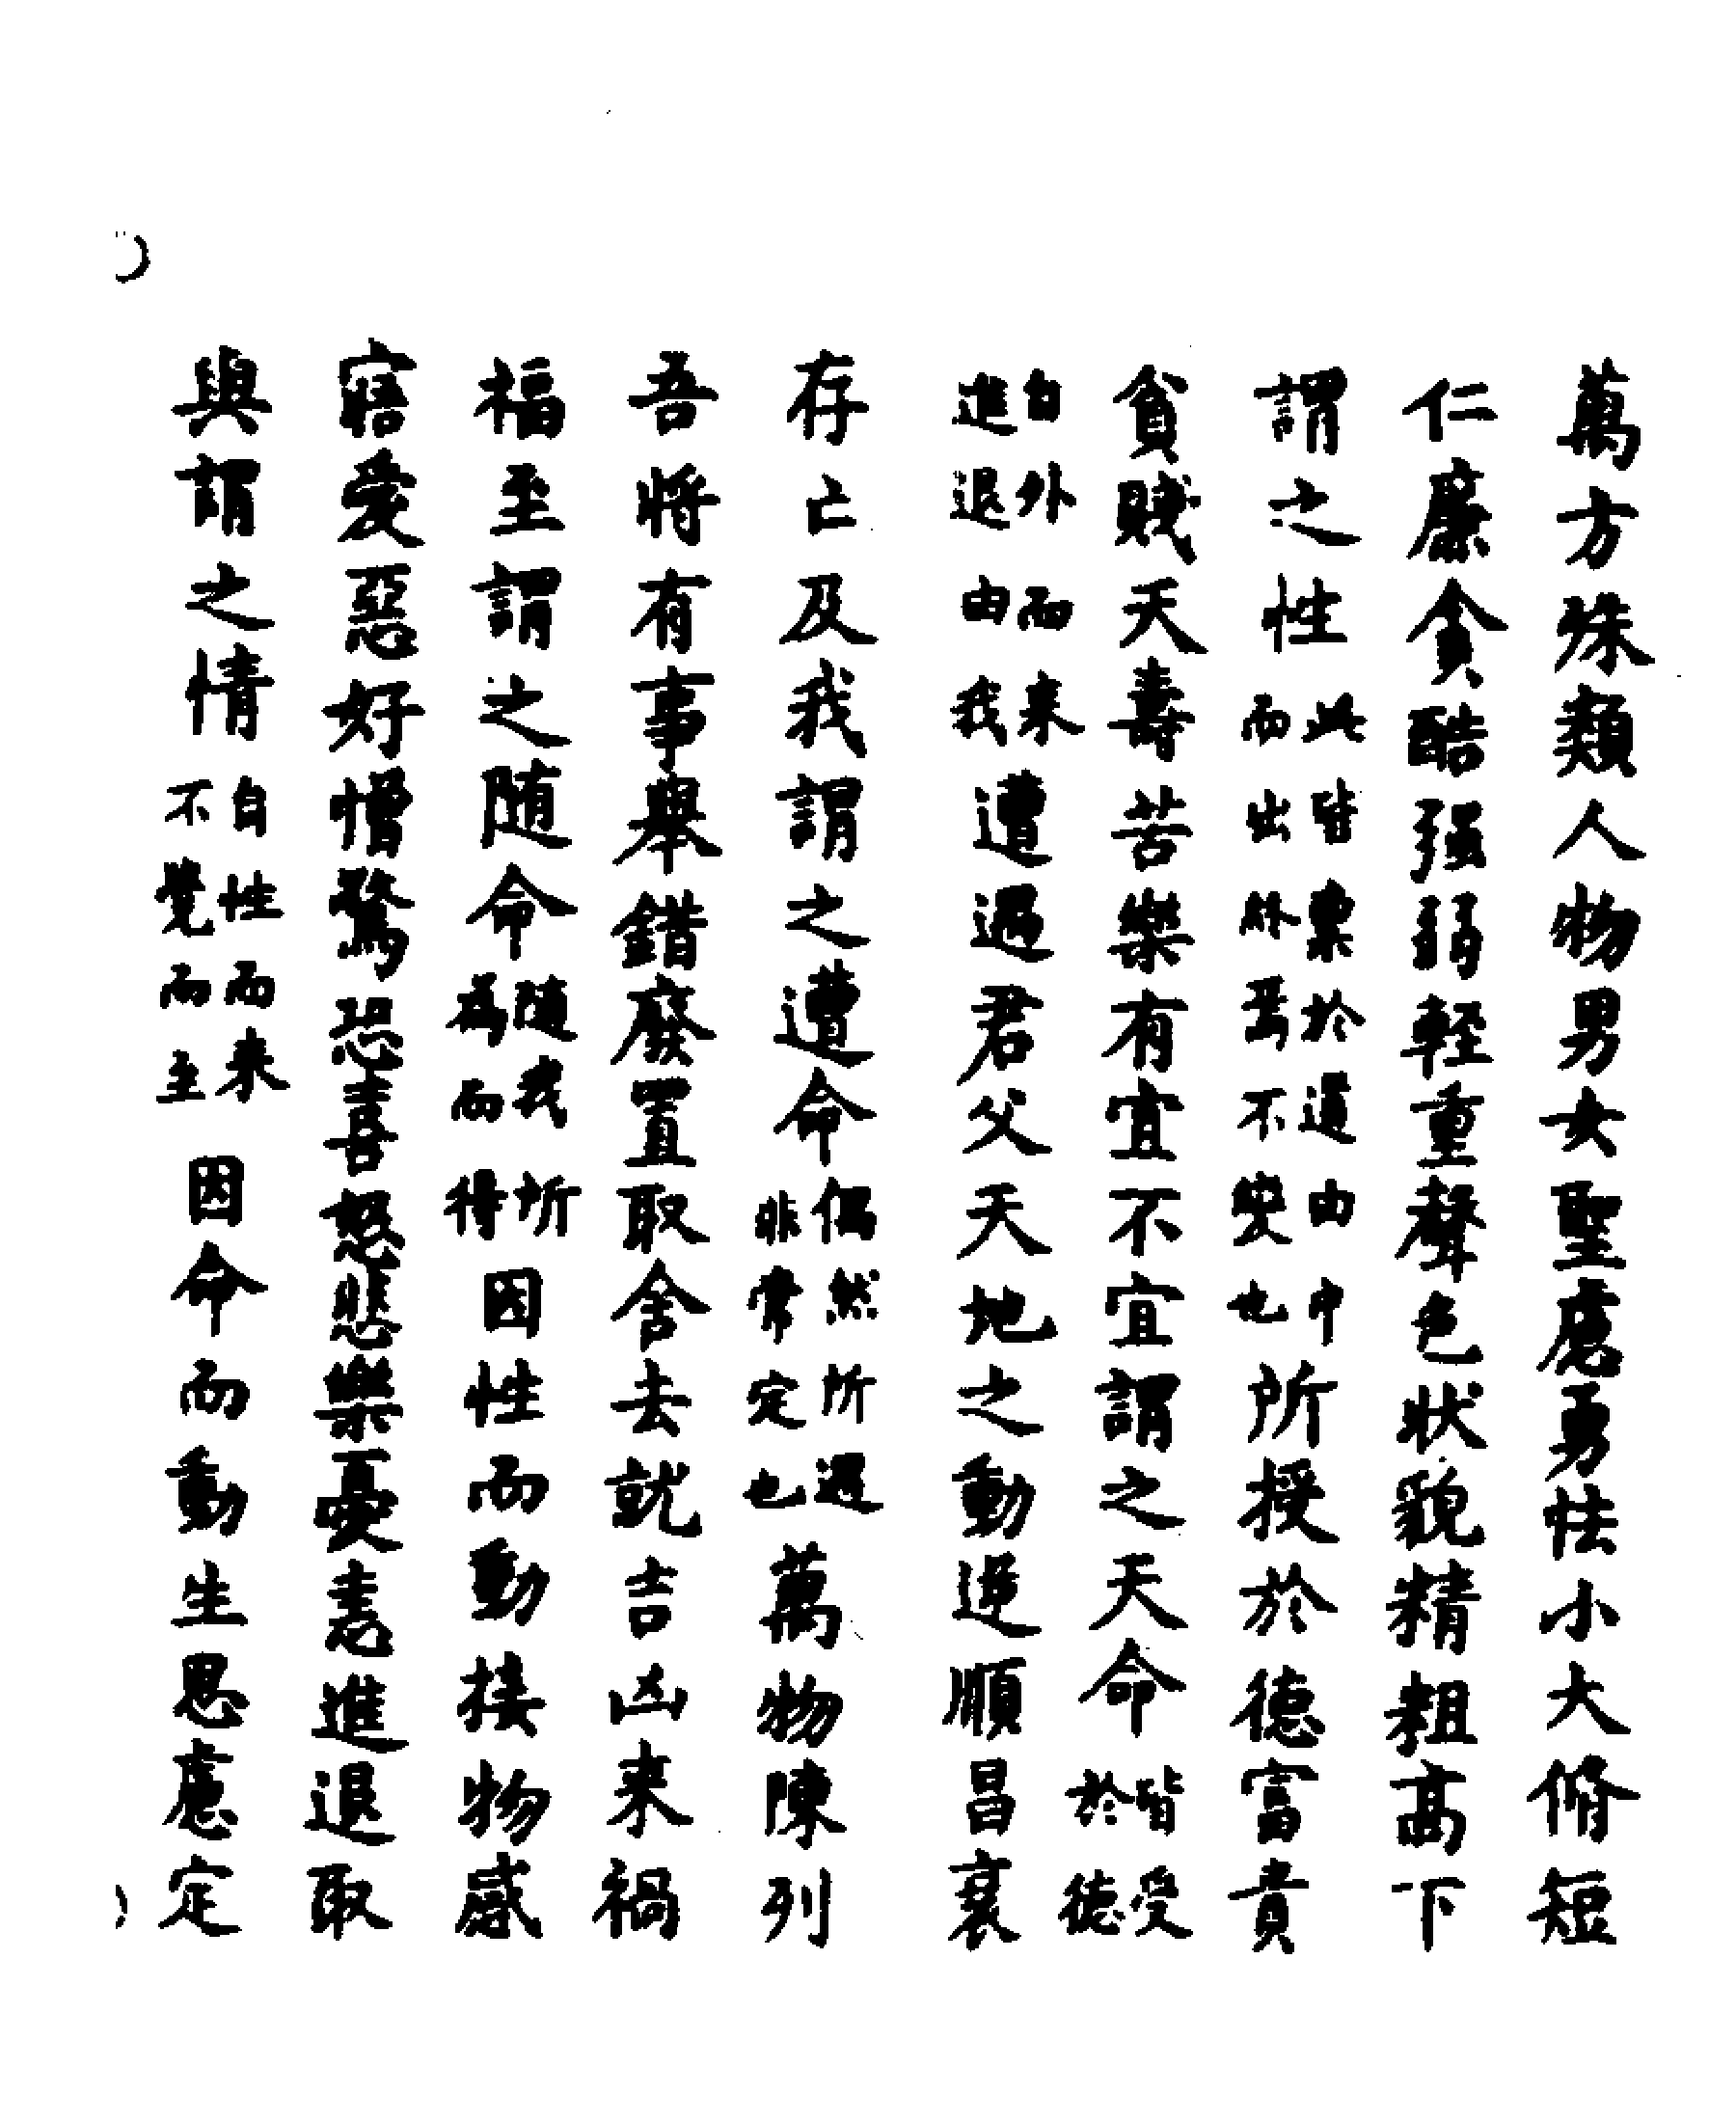 萬方殊類人物男女聖處勇怯小大脩短
仁廉貪酷强弱輕重聲色狀貌精粗高下
謂之性此皆稟於道由中而出外焉不變也所授於德富貴
貧賤夭壽苦樂有宜不宜謂之天命皆受於德
自外而来進退由我遭遇君父天地之動逆順昌衰
存亡及我謂之遭命偶然所遇非常定也萬物陳列
吾將有事舉錯廢置取舍去就吉凶来禍
福至謂之随命随我所為而得因性而動接物感
寤愛惡好憎驚恐喜怒悲樂憂恚進退取
與謂之情自性而来不覺而主因命而動生思慮定